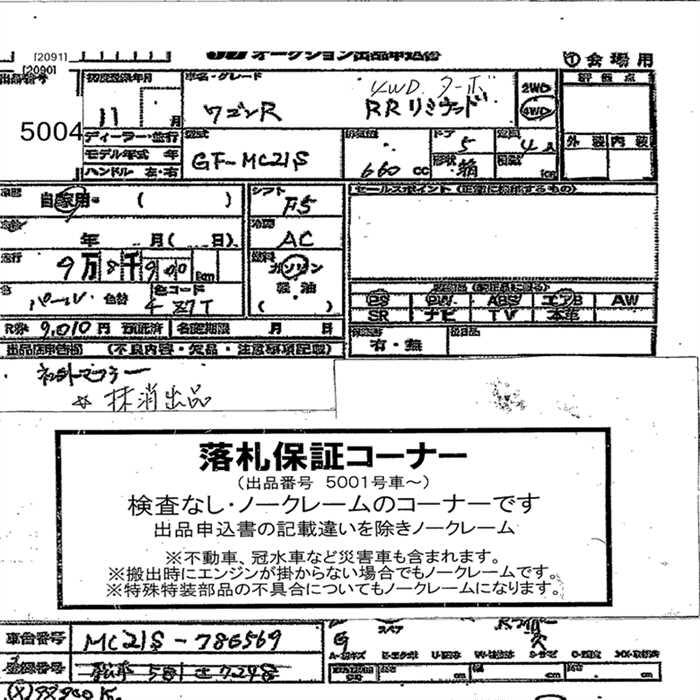 [2091]
JU オークション出品申込書
① 会場用
[2090]
出品番号
初度登録年月
車名・グレード
4WD ターボ
2WD
4WD
評価点
5004
11 月
ワゴンR
RRリミテッド
ディーラー・並行
型式
排気量
ドア
定員
外装
内装
モデル年式 年
GF-MC21S
660 cc
5
4人
ハンドル 左・右
形状
箱
自家用・( )
シフト
F5
セールスポイント (正常に作動するもの)
年 月( 日)
冷房
AC
走行
9万8千900 km
燃料
ガソリン
軽油
( )
色
パール
色替
色コード
Z7T
PS PW ABS エアB AW
SR ナビ TV 本革
R券 9,010円 預託済
名変期限 月 日
有・無
出品店申告欄 (不良内容・欠品・注意事項記載)
社外マフラー
☆ 抹消出品
落札保証コーナー
(出品番号 5001号車~)
検査なし・ノークレームのコーナーです
出品申込書の記載違いを除きノークレーム
※不動車、冠水車など災害車も含まれます。
※搬出時にエンジンが掛からない場合でもノークレームです。
※特殊特装部品の不具合についてもノークレームになります。
車台番号
MC21S-786569
G
スペア
登録番号
581
cm
cm
cm
cm